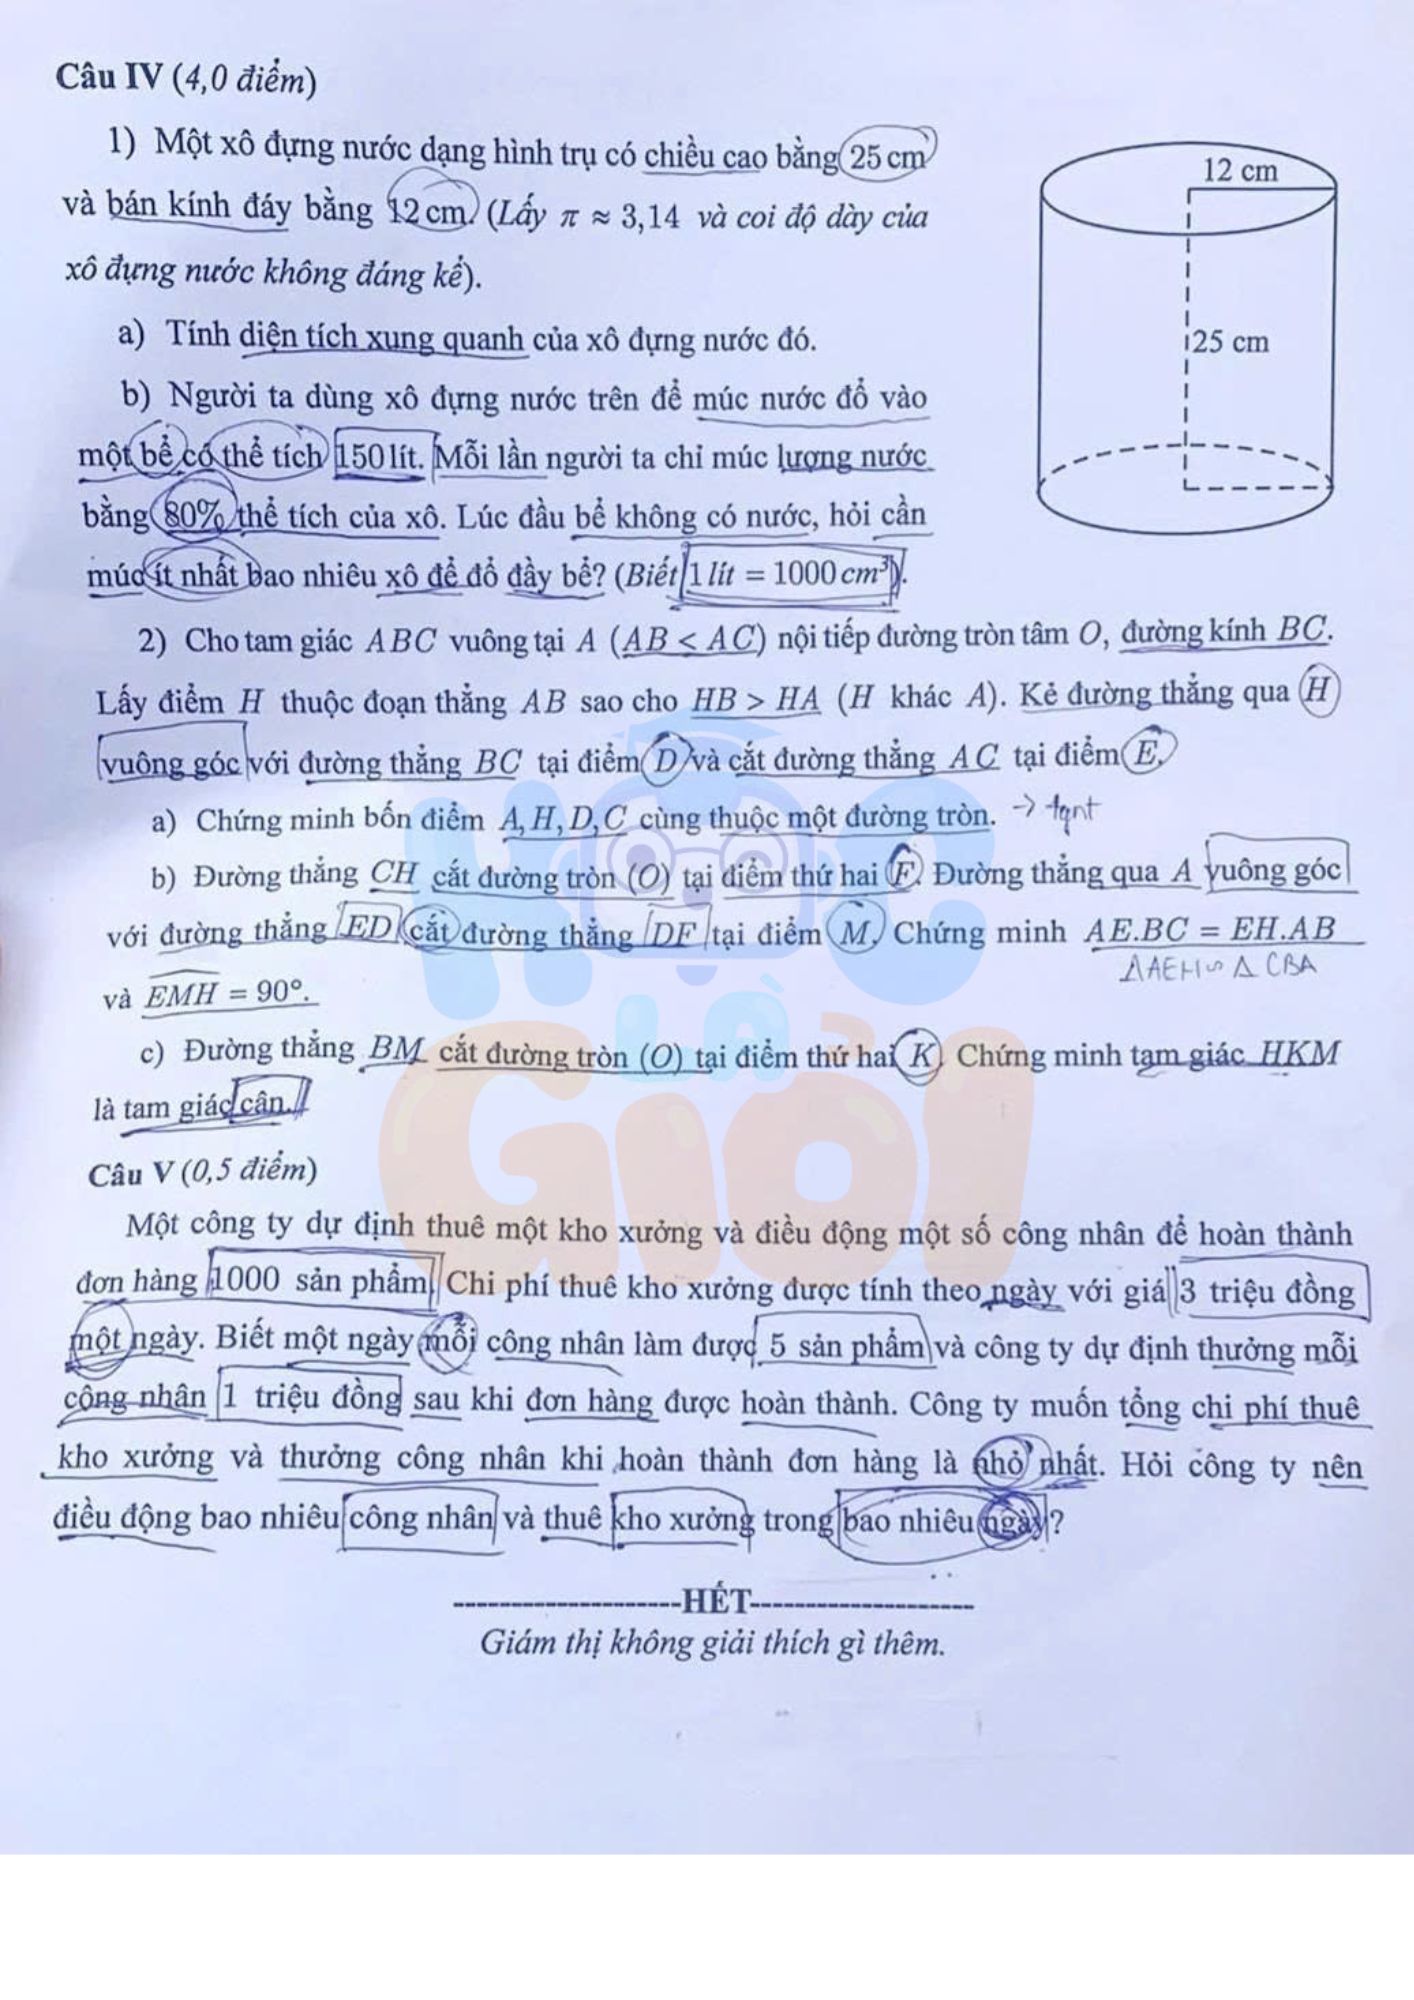 Câu IV (4,0 điểm)
1) Một xô đựng nước dạng hình trụ có chiều cao bằng 25 cm
12 cm
và bán kính đáy bằng 12 cm. (Lấy π ≈ 3,14 và coi độ dày của
xô đựng nước không đáng kể).
a) Tính diện tích xung quanh của xô đựng nước đó.
25 cm
b) Người ta dùng xô đựng nước trên để múc nước đổ vào
một bể có thể tích 150 lít. Mỗi lần người ta chỉ múc lượng nước
bằng 80% thể tích của xô. Lúc đầu bể không có nước, hỏi cần
múc ít nhất bao nhiêu xô để đổ đầy bể? (Biết 1 lít = 1000 cm³).
2) Cho tam giác ABC vuông tại A (AB < AC) nội tiếp đường tròn tâm O, đường kính BC.
Lấy điểm H thuộc đoạn thẳng AB sao cho HB > HA (H khác A). Kẻ đường thẳng qua H
vuông góc với đường thẳng BC tại điểm D và cắt đường thẳng AC tại điểm E.
a) Chứng minh bốn điểm A, H, D, C cùng thuộc một đường tròn. → tgnt
b) Đường thẳng CH cắt đường tròn (O) tại điểm thứ hai F. Đường thẳng qua A vuông góc
với đường thẳng ED cắt đường thẳng DF tại điểm M. Chứng minh AE.BC = EH.AB
ΔAEH ∽ Δ CBA
và EMH = 90°.
c) Đường thẳng BM cắt đường tròn (O) tại điểm thứ hai K. Chứng minh tam giác HKM
là tam giác cân.
HỌC LÀ GIỎI
Câu V (0,5 điểm)
Một công ty dự định thuê một kho xưởng và điều động một số công nhân để hoàn thành
đơn hàng 1000 sản phẩm. Chi phí thuê kho xưởng được tính theo ngày với giá 3 triệu đồng
một ngày. Biết một ngày mỗi công nhân làm được 5 sản phẩm và công ty dự định thưởng mỗi
công nhân 1 triệu đồng sau khi đơn hàng được hoàn thành. Công ty muốn tổng chi phí thuê
kho xưởng và thưởng công nhân khi hoàn thành đơn hàng là nhỏ nhất. Hỏi công ty nên
điều động bao nhiêu công nhân và thuê kho xưởng trong bao nhiêu ngày?
--------------------HẾT--------------------
Giám thị không giải thích gì thêm.